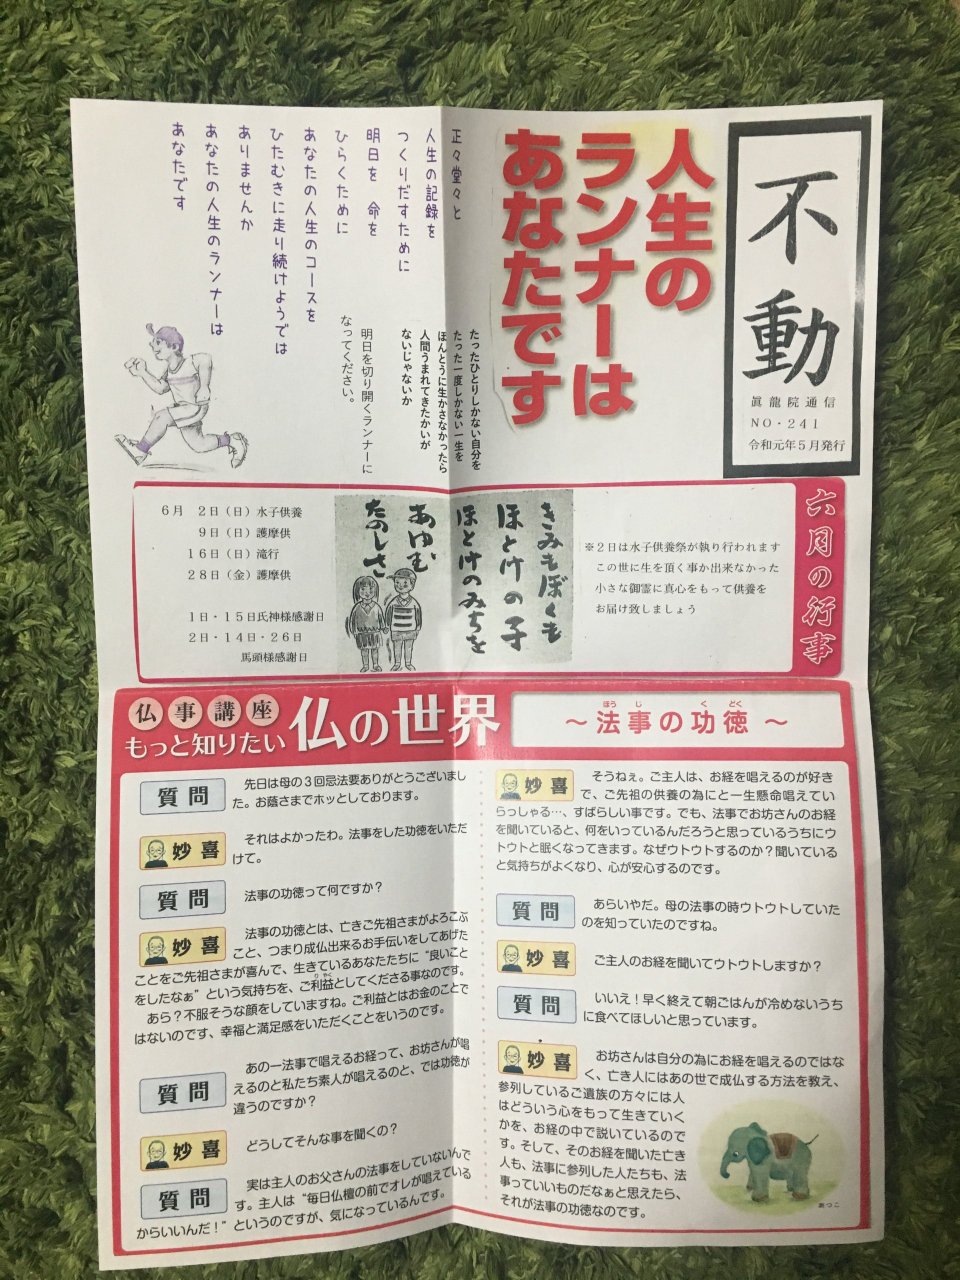 不動
眞龍院通信
NO・241
令和元年5月発行
人生の
ランナーは
あなたです
正々堂々と
人生の記録を
つくりだすために
明日を 命を
ひらくために
あなたの人生のコースを
ひたむきに走り続けようでは
ありませんか
あなたの人生のランナーは
あなたです
たったひとりしかない自分を
たった一度しかない一生を
ほんとうに生かさなかったら
人間うまれてきたかいが
ないじゃないか
明日を切り開くランナーに
なってください。
六月の行事
※2日は水子供養祭が執り行われます
この世に生を頂く事が出来なかった
小さな御霊に真心をもって供養を
お届け致しましょう
きみもぼくも
ほとけの子
ほとけのみちを
あゆむ
たのしさ
6月 2日(日)水子供養
9日(日)護摩供
16日(日)滝行
28日(金)護摩供
1日・15日氏神様感謝日
2日・14日・26日
馬頭様感謝日
仏事講座
もっと知りたい 仏の世界
～法事の功徳～
ほうじ くどく
質問 先日は母の3回忌法要ありがとうございまし
た。お蔭さまでホッとしております。
妙喜 それはよかったわ。法事をした功徳をいただ
けて。
質問 法事の功徳って何ですか？
妙喜 法事の功徳とは、亡きご先祖さまがよろこぶ
こと、つまり成仏出来るお手伝いをしてあげた
ことをご先祖さまが喜んで、生きているあなたたちに“良いこと
をしたなぁ”という気持ちを、ご利益としてくださる事なのです。
りやく
あら？不服そうな顔をしていますね。ご利益とはお金のことで
はないのです、幸福と満足感をいただくことをいうのです。
質問 あの一法事で唱えるお経って、お坊さんが唱
えるのと私たち素人が唱えるのと、では功徳が
違うのですか？
妙喜 どうしてそんな事を聞くの？
質問 実は主人のお父さんの法事をしていないんで
す。主人は“毎日仏壇の前でオレが唱えている
からいいんだ！”というのですが、気になっているんです。
妙喜 そうねぇ。ご主人は、お経を唱えるのが好き
で、ご先祖の供養の為にと一生懸命唱えてい
らっしゃる…、すばらしい事です。でも、法事でお坊さんのお経
を聞いていると、何をいっているんだろうと思っているうちにウ
トウトと眠くなってきます。なぜウトウトするのか？聞いている
と気持ちがよくなり、心が安心するのです。
質問 あらいやだ。母の法事の時ウトウトしていた
のを知っていたのですね。
妙喜 ご主人のお経を聞いてウトウトしますか？
質問 いいえ！早く終えて朝ごはんが冷めないうち
に食べてほしいと思っています。
妙喜 お坊さんは自分の為にお経を唱えるのではな
く、亡き人にはあの世で成仏する方法を教え、
参列しているご遺族の方々には人
はどういう心をもって生きていく
かを、お経の中で説いているので
す。そして、そのお経を聞いた亡き
人も、法事に参列した人たちも、法
事っていいものだなぁと思えたら、
それが法事の功徳なのです。
あつこ